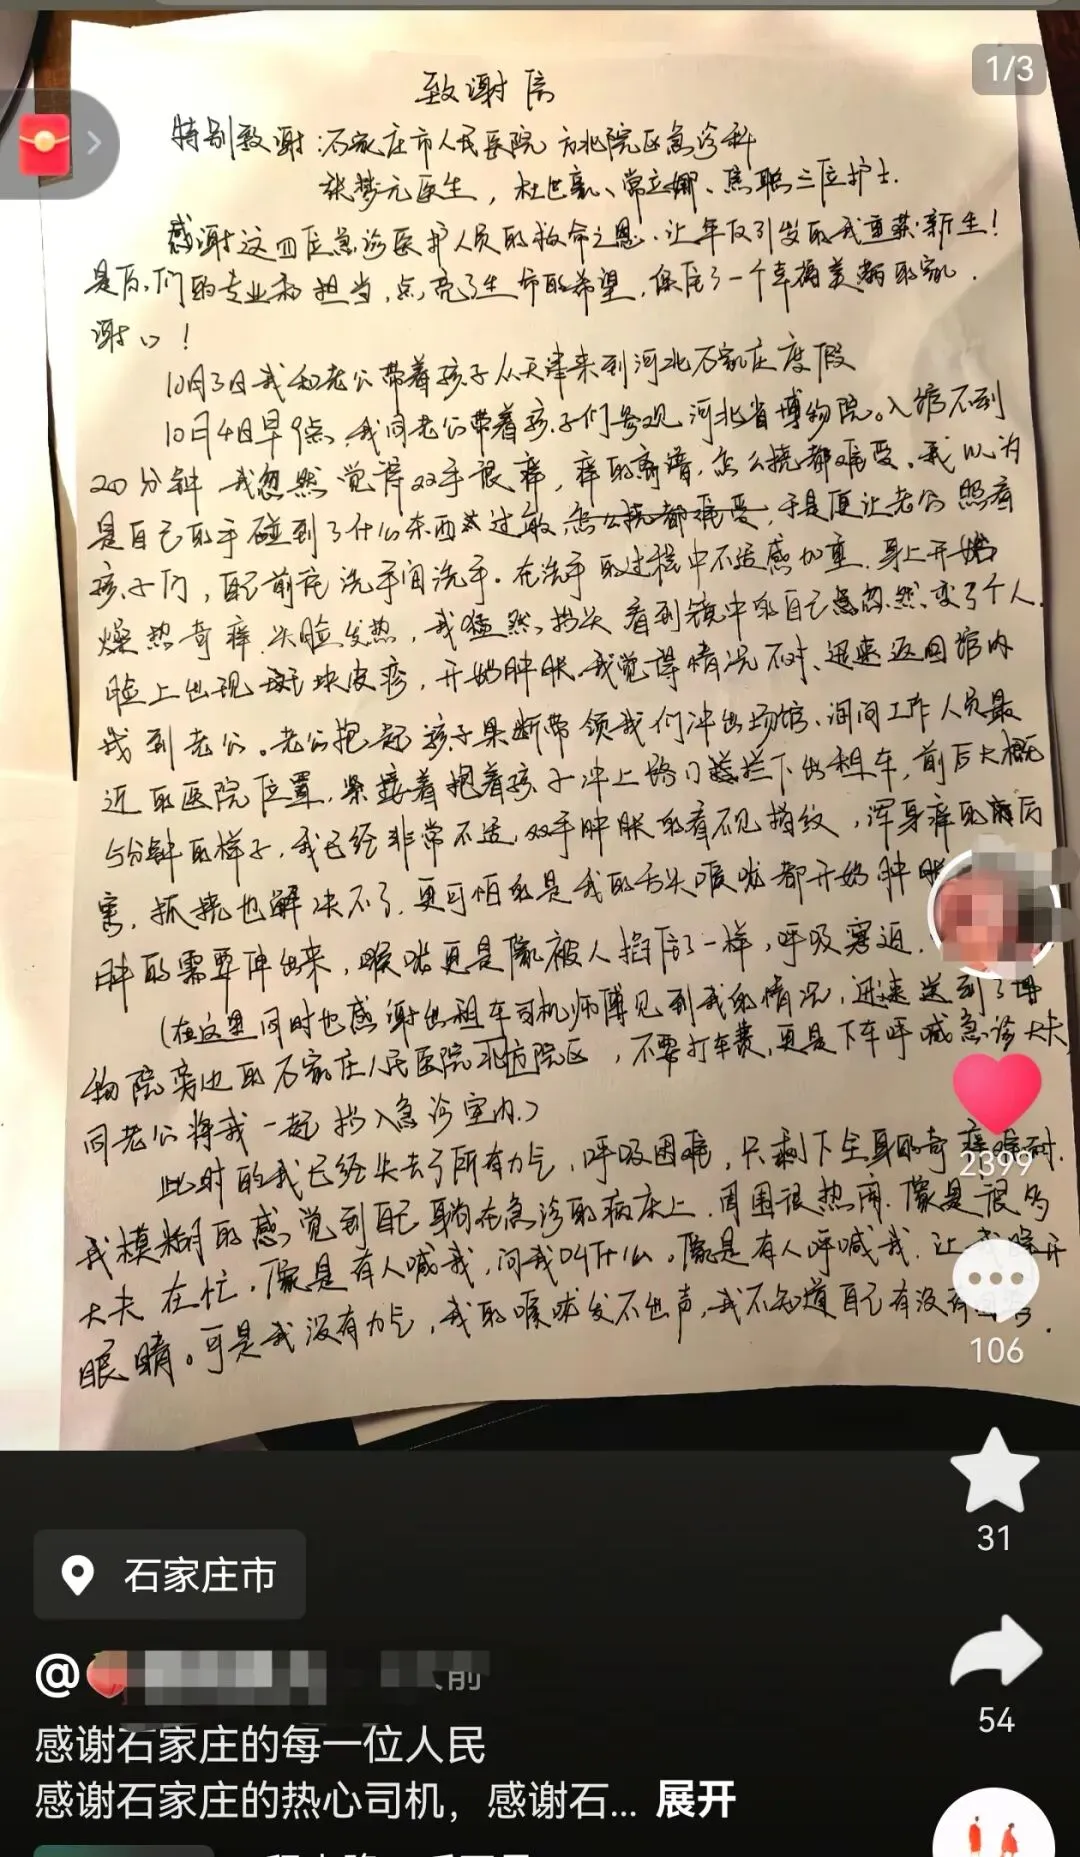 1/3
致谢信
特别致谢：石家庄市人民医院 方北院区急诊科
张梦元医生，杜世亮、常立娜、焦聪三位护士.
感谢这四位急诊医护人员的救命之恩.让年仅引发的我重获新生！
是你们的专业和担当,点亮了生命的希望,保住了一个幸福美满的家.
谢谢！
10月3日我和老公带着孩子从天津来到河北石家庄度假
10月4日早9点,我同老公带着孩子们参观河北省博物院。入馆不到
20分钟 我忽然觉得双手很痒，痒的离谱,怎么挠都难受.我以为
是自己的手碰到了什么东西过敏 怎么挠都难受,于是便让老公照看
孩子们，自己前往洗手间洗手.在洗手的过程中不适感加重.身上开始
燥热奇痒.头脸发热，我猛然抬头看到镜中的自己忽然变了个人.
脸上出现斑块皮疹，开始肿胀.我觉得情况不对、迅速返回馆内
找到老公。老公抱起孩子果断带领我们冲出场馆、询问工作人员最
近的医院位置.紧接着抱着孩子冲上路口拦下出租车,前后大概
5分钟的样子.我已经非常不适.双手肿胀的看不见指纹，浑身痒的厉
害.抓挠也解决不了.更可怕的是我的舌头喉咙都开始肿胀
肿的需要伸出来，喉咙更是像被人掐住了一样，呼吸窘迫.
(在这里同时也感谢出租车司机师傅见到我的情况，迅速送到了博
物院旁边的石家庄人民医院方北院区，不要打车费,更是下车呼喊急诊大夫,
同老公将我一起抬入急诊室内.)
此时的我已经失去了所有力气，呼吸困难，只剩下全身的奇痒难耐.
我模糊的感觉到自己躺在急诊的病床上.周围很热闹.像是很多
大夫在忙.像是有人喊我,问我叫什么.像是有人呼喊我.让我睁开
眼睛。可是我没有力气，我的喉咙发不出声,我不知道自己有没有
2399
106
31
54
石家庄市
@
前
感谢石家庄的每一位人民
感谢石家庄的热心司机，感谢石... 展开